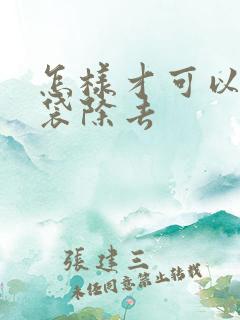 怎樣才可以
袋除去
張建三
未經同意禁止轉載